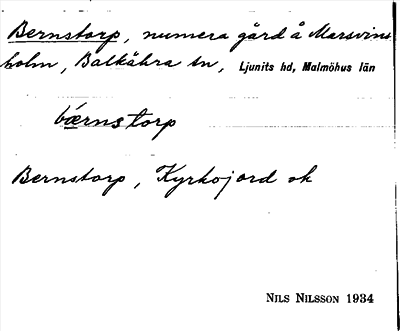 Bernstorp, numera gård å Marsvins
holm, Balkåkra sn, Ljunits hd, Malmöhus län
bǽrnstorp
Bernstorp, Kyrkojord ok
NILS NILSSON 1934